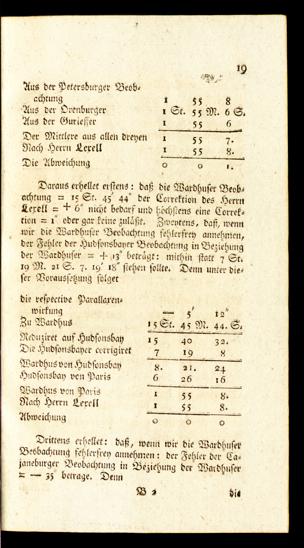 19
Aus der Petersburger Beob-
achtung 1 55 8
Aus der Orenburger 1 St. 55 M. 6 S.
Aus der Guriefſer 1 55 6
Der Mittlere aus allen dreyen 1 55 7.
Nach Herrn Lexell 1 55 8.
Die Abweichung 0 0 1.
Daraus erhellet erſtens: daß die Wardhuſer Beob-
achtung = 15 St. 45′ 44″ der Correktion des Herrn
Lexell = + 6″ nicht bedarf und höchſtens eine Correk-
tion = 1″ oder gar keine zuläßt. Zweytens, daß, wenn
wir die Wardhuſer Beobachtung fehlerfrey annehmen,
der Fehler der Hudſonsbayer Beobachtung in Beziehung
der Wardhuſer = + 13″ beträgt: mithin ſtatt 7 St.
19 M. 21 S. 7. 19′ 18″ ſtehen ſollte. Denn unter die-
ſer Vorausſetzung folget
die reſpective Parallaxen-
wirkung — 5′ 12″
Zu Wardhus 15 St. 45 M. 44. S.
Reduziret auf Hudſonsbay 15 40 32.
Die Hudſonsbayer corrigiret 7 19 8
Wardhus von Hudſonsbay 8. 21. 24
Hudſonsbay von Paris 6 26 16
Wardhus von Paris 1 55 8.
Nach Herrn Lexell 1 55 8.
Abweichung 0 0 0
Drittens erhellet: daß, wenn wir die Wardhuſer
Beobachtung fehlerfrey annehmen: der Fehler der Ca-
janeburger Beobachtung in Beziehung der Wardhuſer
= — 35″ betrage. Denn
B 2 die